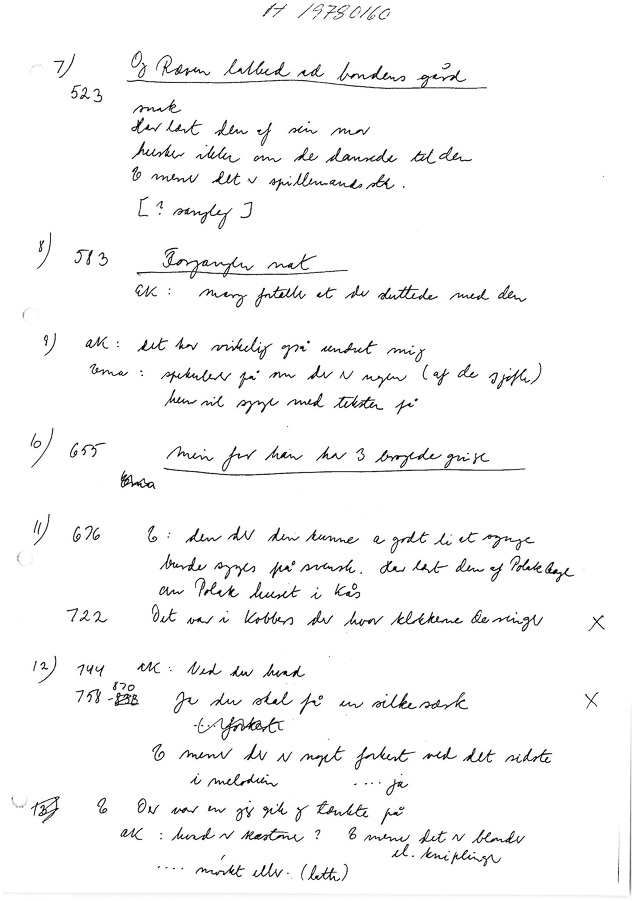 H 19780160
7) Og Ræven labbed ad bondens gård
523
snak
Har lært den af sin mor
husker ikke om de dansede til den
E mener det r spillemandsstk.
[? sangleg]
8) 583 Forgangen nat
AK: mang fortalte at de sluttede med den
9) AK: det har virkelig også undret mig
Ema: spekulerer på om der r nogen (af de
hun vil synge med tekster på
10) 655 Min far han har 3 brogede grise
11) 676 E: den der den kunne a godt li at synge
burde synges på svensk. Har lært den af Polak Aage
Polak huset i Kås
722 Det var i Kobbers der hvor klokkerne de ringer X
12) 744 AK: Ved du hvad
758 - 870 Ja du skal få en silkesærk X
E mener der r noget forkert ved det sidste
i melodien .... ja
13) E Der var en gik og tænkte på
AK: hvad r kastane? E mener det r blonder
el. kniplinger
.... mørkt eller. (latter)